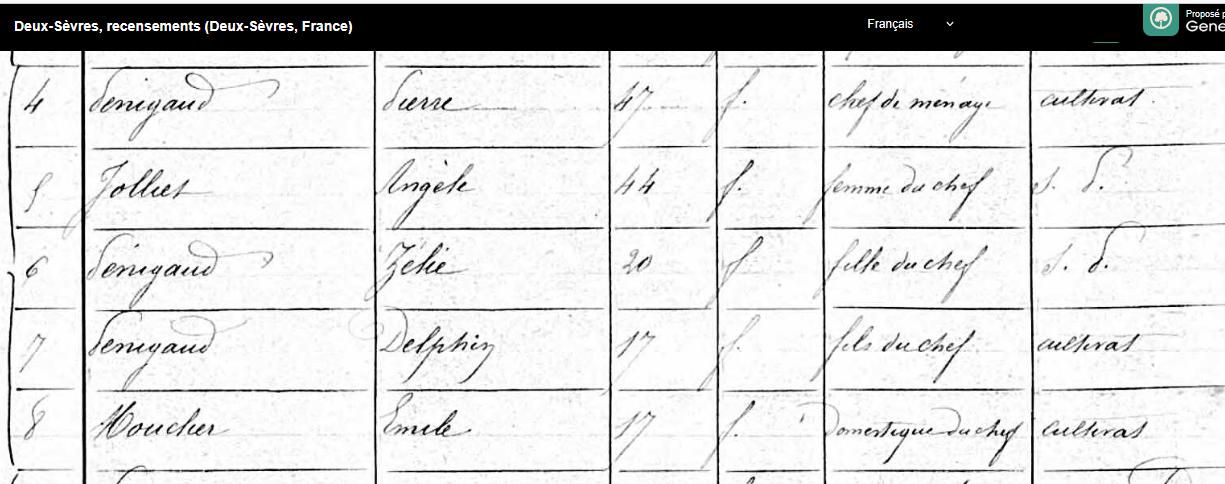 Deux-Sèvres, recensements (Deux-Sèvres, France) Français Proposé p
Gene
4 Penigaud Pierre 47 f. chef de ménage cultivat
5 Jolliet Angèle 44 f. femme du chef s. p.
6 Penigaud Zélie 20 f fille du chef s. p.
7 Penigaud Delphin 17 f. fils du chef cultivat
8 Moucher Emile 17 f. domestique du chef cultivat